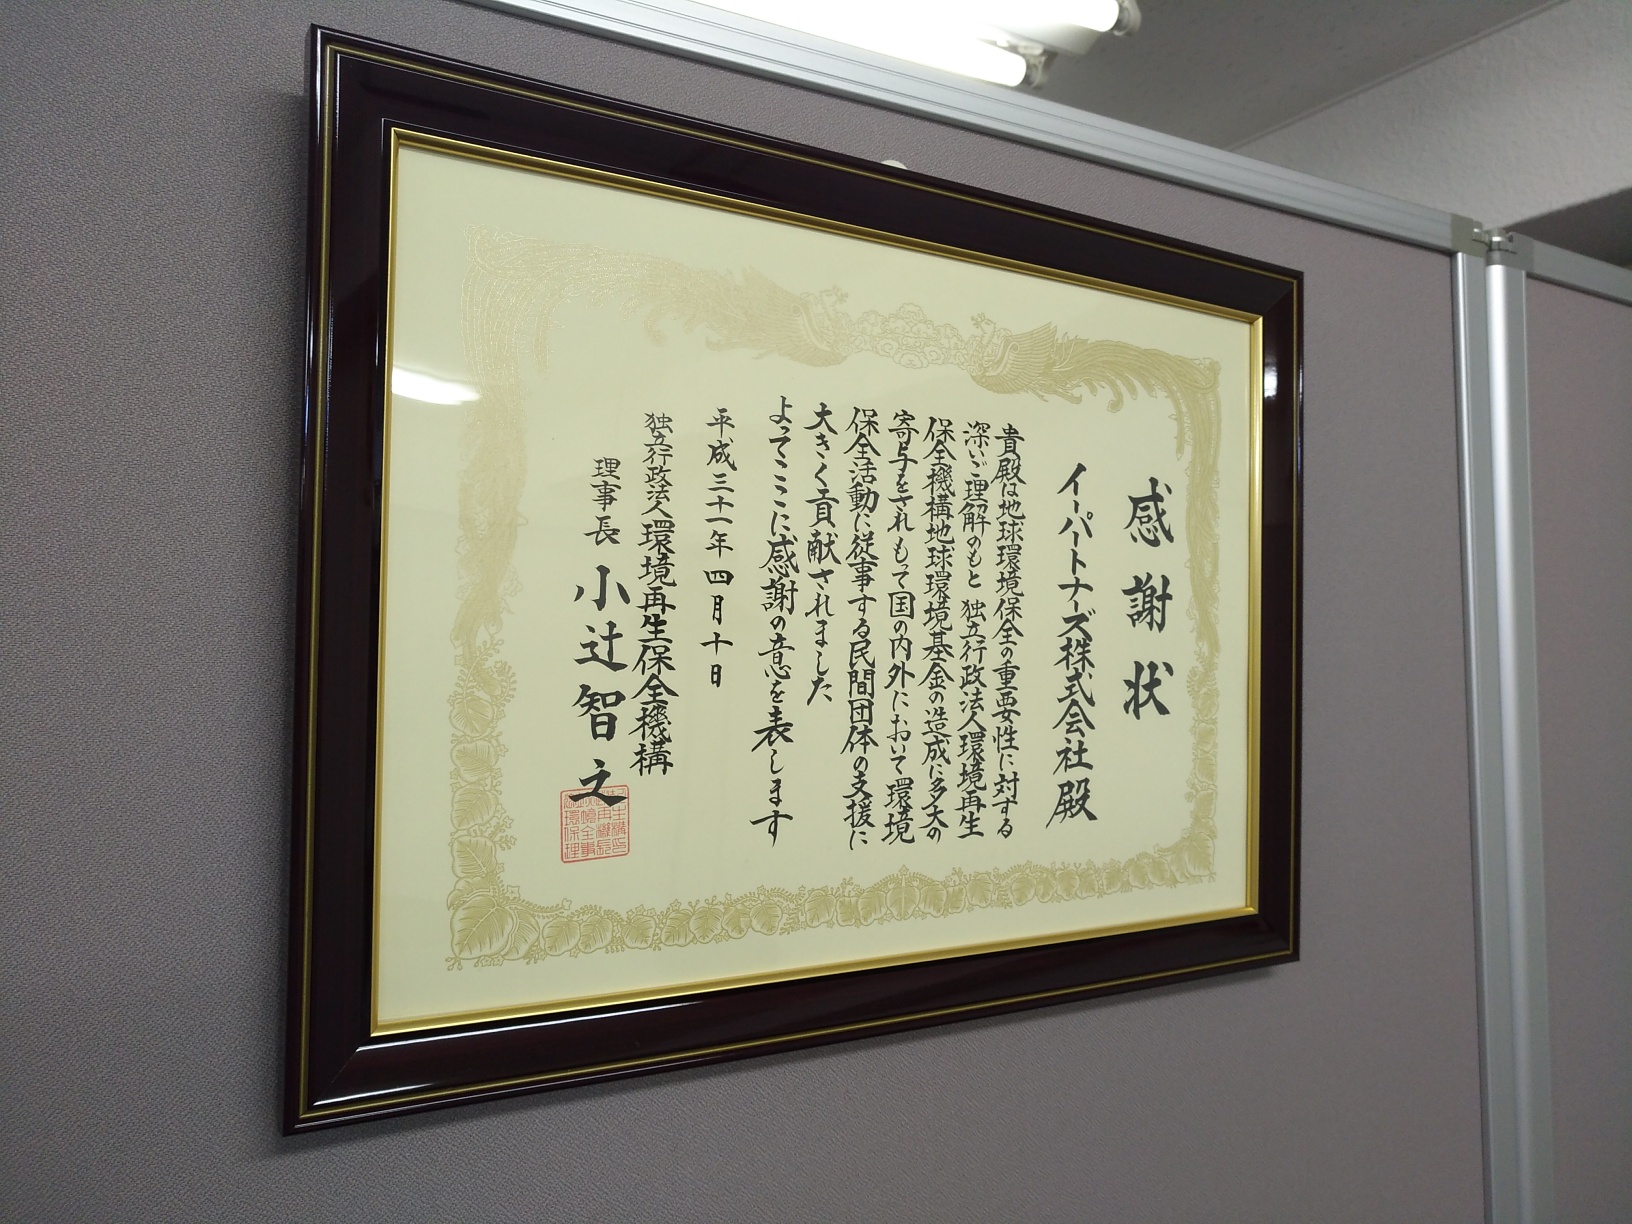 感謝状
イーパートナーズ株式会社殿
貴殿は地球環境保全の重要性に対する
深いご理解のもと 独立行政法人環境再生
保全機構地球環境基金の造成に多大の
寄与をされ もって国の内外において環境
保全活動に従事する民間団体の支援に
大きく貢献されました
よってここに感謝の意を表します
平成三十一年四月十日
独立行政法人環境再生保全機構
理事長 小辻智之